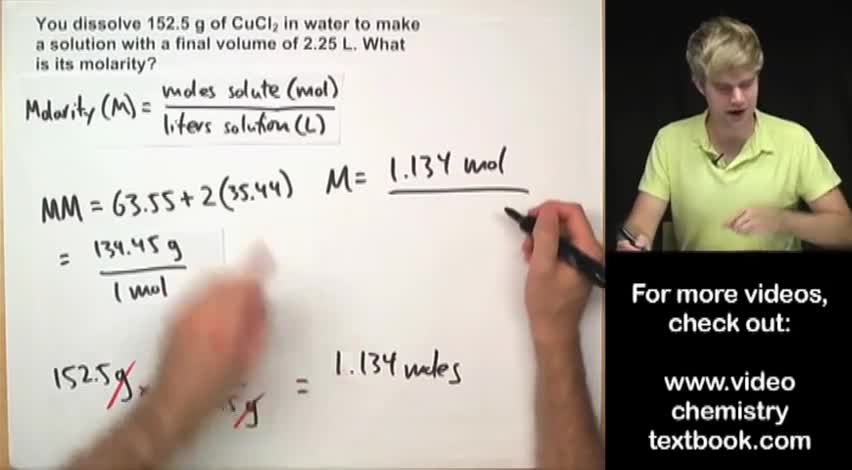 You dissolve 152.5 g of CuCl₂ in water to make
a solution with a final volume of 2.25 L. What
is its molarity?
Molarity (M) = moles solute (mol)
liters solution (L)
MM = 63.55 + 2(35.44)
= 134.45 g
1 mol
M = 1.134 mol
152.5g x
.5 g
= 1.134 moles
For more videos,
check out:
www.video
chemistry
textbook.com